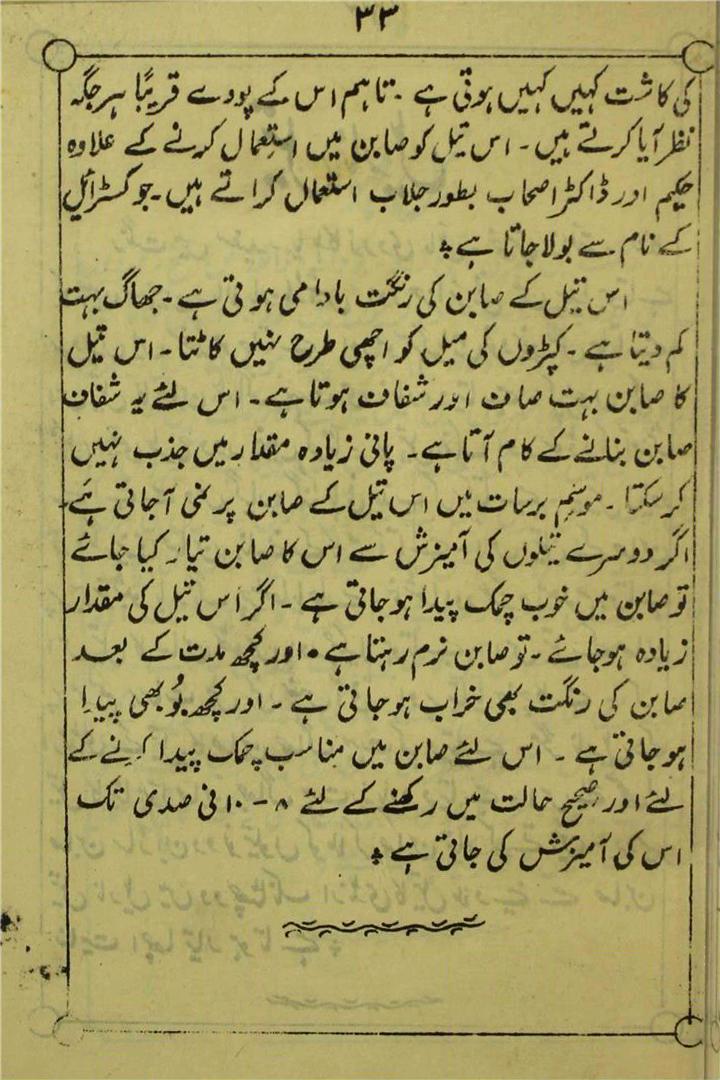 ۳۳
کی کاشت کہیں کہیں ہوتی ہے ۔ تاہم اس کے پودے قریباً ہر جگہ
نظر آیا کرتے ہیں ۔ اس تیل کو صابن میں استعمال کرنے کے علاوہ
حکیم اور ڈاکٹر اصحاب بطور جلاب استعمال کراتے ہیں ۔ جو کسٹرائیل
کے نام سے بولا جاتا ہے ؞
اس تیل کے صابن کی رنگت بادامی ہوتی ہے ۔ جھاگ بہت
کم دیتا ہے ۔ کپڑوں کی میل کو اچھی طرح نہیں کاٹتا ۔ اس تیل
کا صابن بہت صاف اور شفاف ہوتا ہے ۔ اس لئے یہ شفاف
صابن بنانے کے کام آتا ہے ۔ پانی زیادہ مقدار میں جذب نہیں
کر سکتا ۔ موسمِ برسات میں اس تیل کے صابن پر نمی آجاتی ہے ۔
اگر دوسرے تیلوں کی آمیزش سے اس کا صابن تیار کیا جائے
تو صابن میں خوب چمک پیدا ہوجاتی ہے ۔ اگر اس تیل کی مقدار
زیادہ ہوجائے ۔ تو صابن نرم رہتا ہے ۔ اور کچھ مدت کے بعد
صابن کی رنگت بھی خراب ہوجاتی ہے ۔ اور کچھ بُو بھی پیدا
ہوجاتی ہے ۔ اس لئے صابن میں مناسب چمک پیدا کرنے کے
لئے اور صحیح حالت میں رکھنے کے لئے ۸ - ۱۰ فی صدی تک
اس کی آمیزش کی جاتی ہے ؞